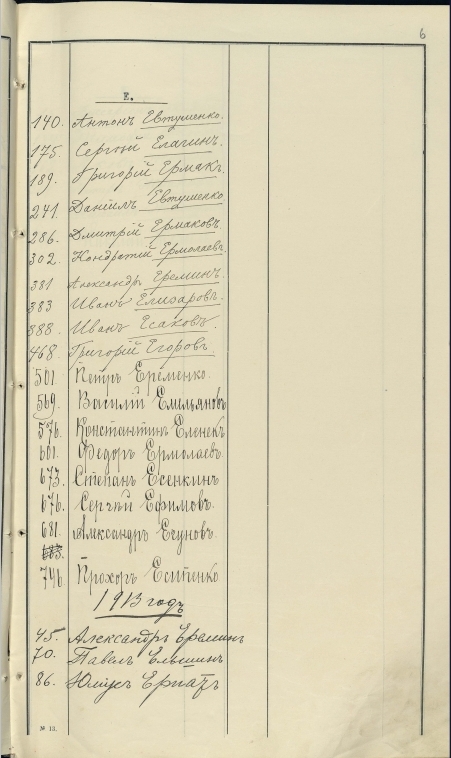 6
Е.
140. Антонъ Евтушенко.
175. Сергѣй Елагинъ.
189. Григорій Ермакъ.
241. Даніилъ Евтушенко
286. Дмитрій Ермаковъ.
302. Кондратій Ермолаевъ.
381 Александръ Ереминъ.
383 Иванъ Елизаровъ.
388. Иванъ Есаковъ.
468. Григорій Егоровъ.
501. Петръ Еременко.
569. Василій Емельяновъ
576. Константинъ Еленекъ
601. Федоръ Ермолаевъ.
673. Степанъ Есенкинъ
676. Сергѣй Ефимовъ.
681. Александръ Ечуновъ.
683.
746 Прохоръ Есипенко
1913 годъ
45. Александръ Ереминъ
70. Павелъ Ельшинъ
86.
№ 13.